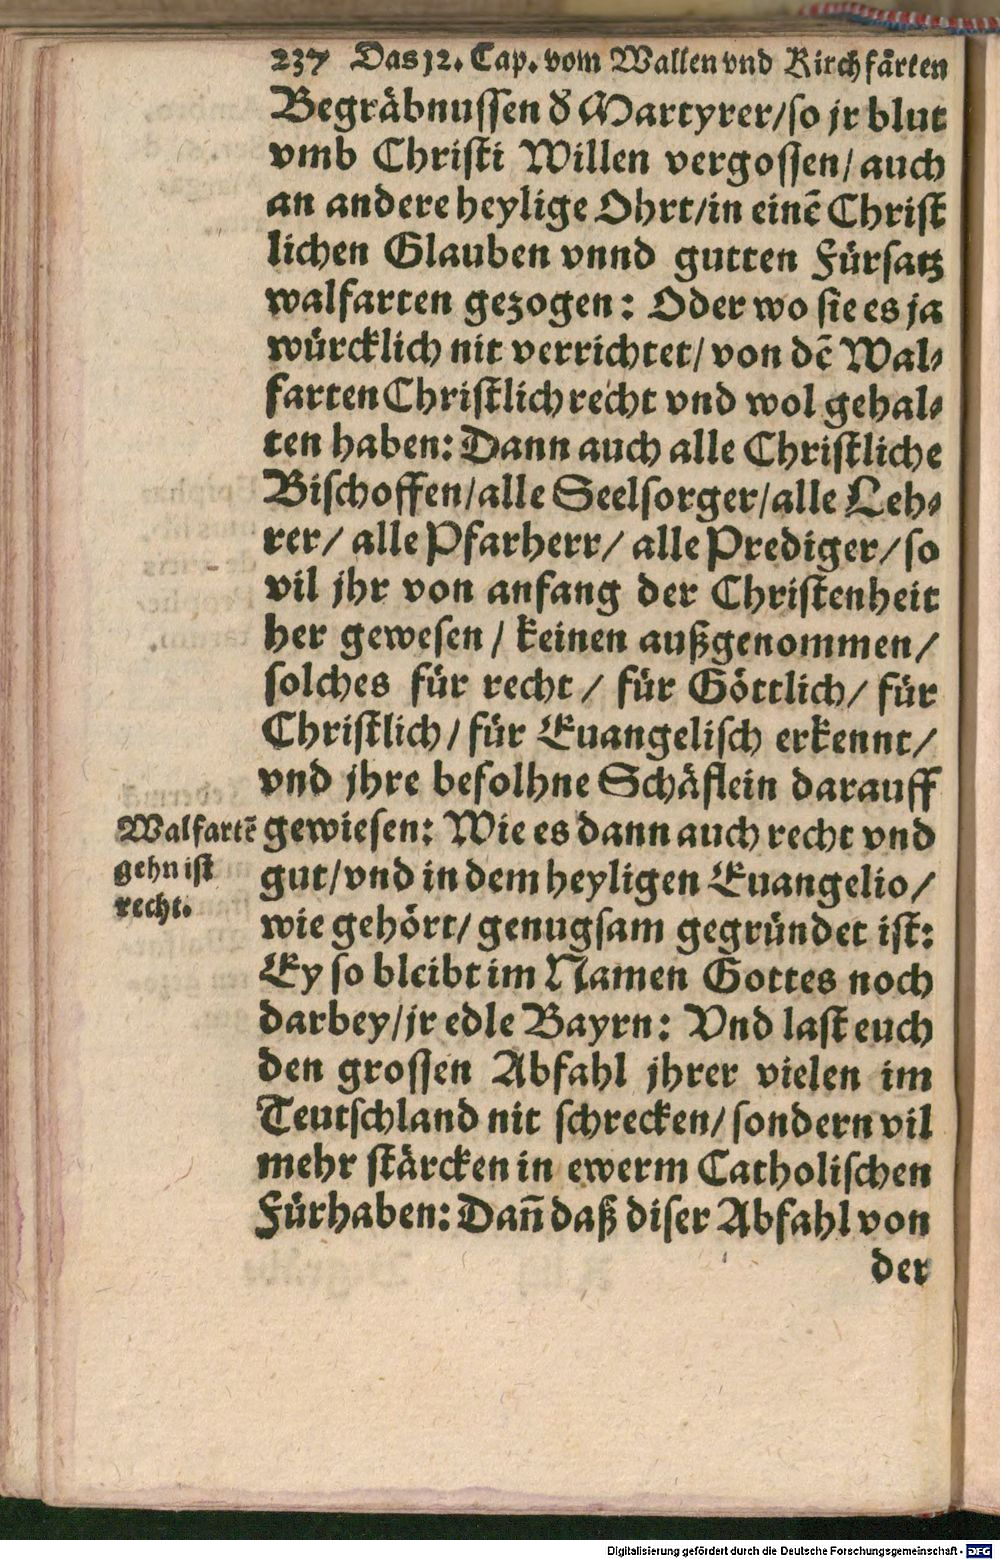 237 Das 12. Cap. vom Wallen vnd Kirchfärten
Begräbnussen d̕ Martyrer/so jr blut
vmb Christi Willen vergossen/auch
an andere heylige Ohrt/in einē Christ
lichen Glauben vnnd gutten Fürsatz
walfarten gezogen: Oder wo sie es ja
würcklich nit verrichtet/von dē Wal-
farten Christlich recht vnd wol gehal-
ten haben: Dann auch alle Christliche
Bischoffen/alle Seelsorger/alle Leh-
rer/ alle Pfarherr/ alle Prediger/so
vil jhr von anfang der Christenheit
her gewesen / keinen außgenommen/
solches für recht / für Göttlich/ für
Christlich/ für Euangelisch erkennt/
vnd jhre befolhne Schäflein darauff
Walfartē
gehn ist
recht.
gewiesen: Wie es dann auch recht vnd
gut/vnd in dem heyligen Euangelio/
wie gehört/ genugsam gegründet ist:
Ey so bleibt im Namen Gottes noch
darbey/jr edle Bayrn: Vnd last euch
den grossen Abfahl jhrer vielen im
Teutschland nit schrecken/sondern vil
mehr stärcken in ewerm Catholischen
Fürhaben: Dañ daß diser Abfahl von
der
Digitalisierung gefördert durch die Deutsche Forschungsgemeinschaft - DFG